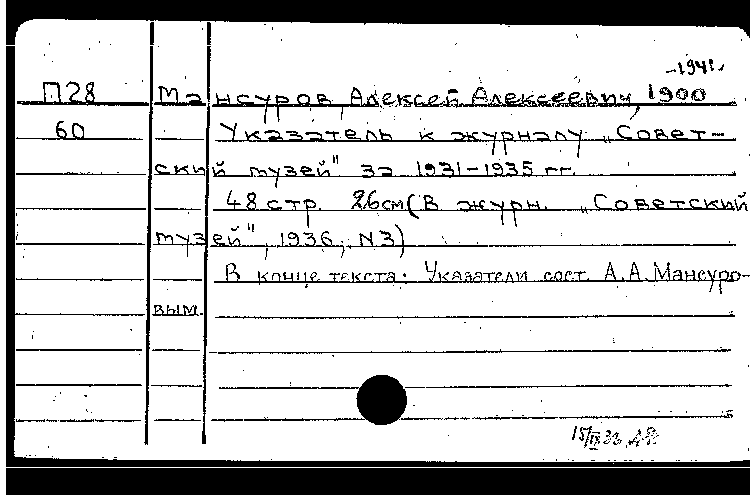 -1941.
П28 Мансуров, Алексей Алексеевич, 1900
60 Указатель к журналу „Совет-
ский музей" за 1931-1935 гг.
48 стр. 26см (В журн. „Советский
музей", 1936, N3)
В конце текста: Указатели сост. А.А. Мансуро-
вым.